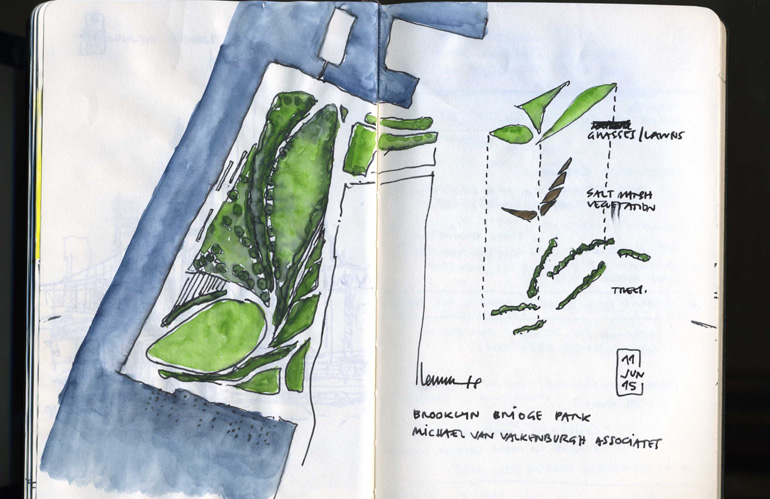 GRASSES/LAWNS
SALT MARSH
VEGETATION
TREES.
11
JUN
15
BROOKLYN BRIDGE PARK
MICHAEL VAN VALKENBURGH ASSOCIATES